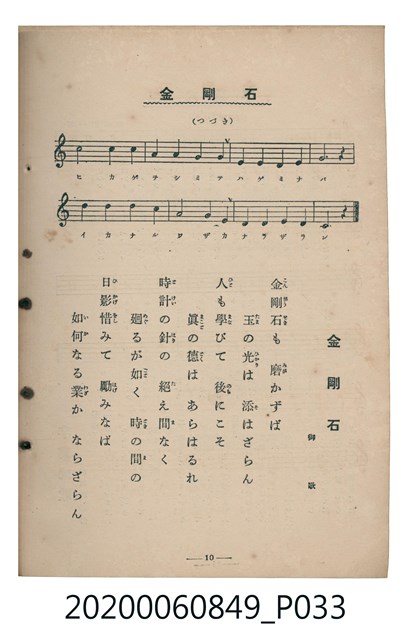 金剛石
(つづき)
ヒカゲヲシミテハゲミナバ
イカナルワザカナラザラン
金剛石
御歌
金剛石も 磨かずば
玉の光は 添はざらん
人も學びて 後にこそ
眞の德は あらはるれ
時計の針の 絕え間なく
廻るが如く 時の間の
日影惜みて 勵みなば
如何なる業か ならざらん
10
20200060849_P033